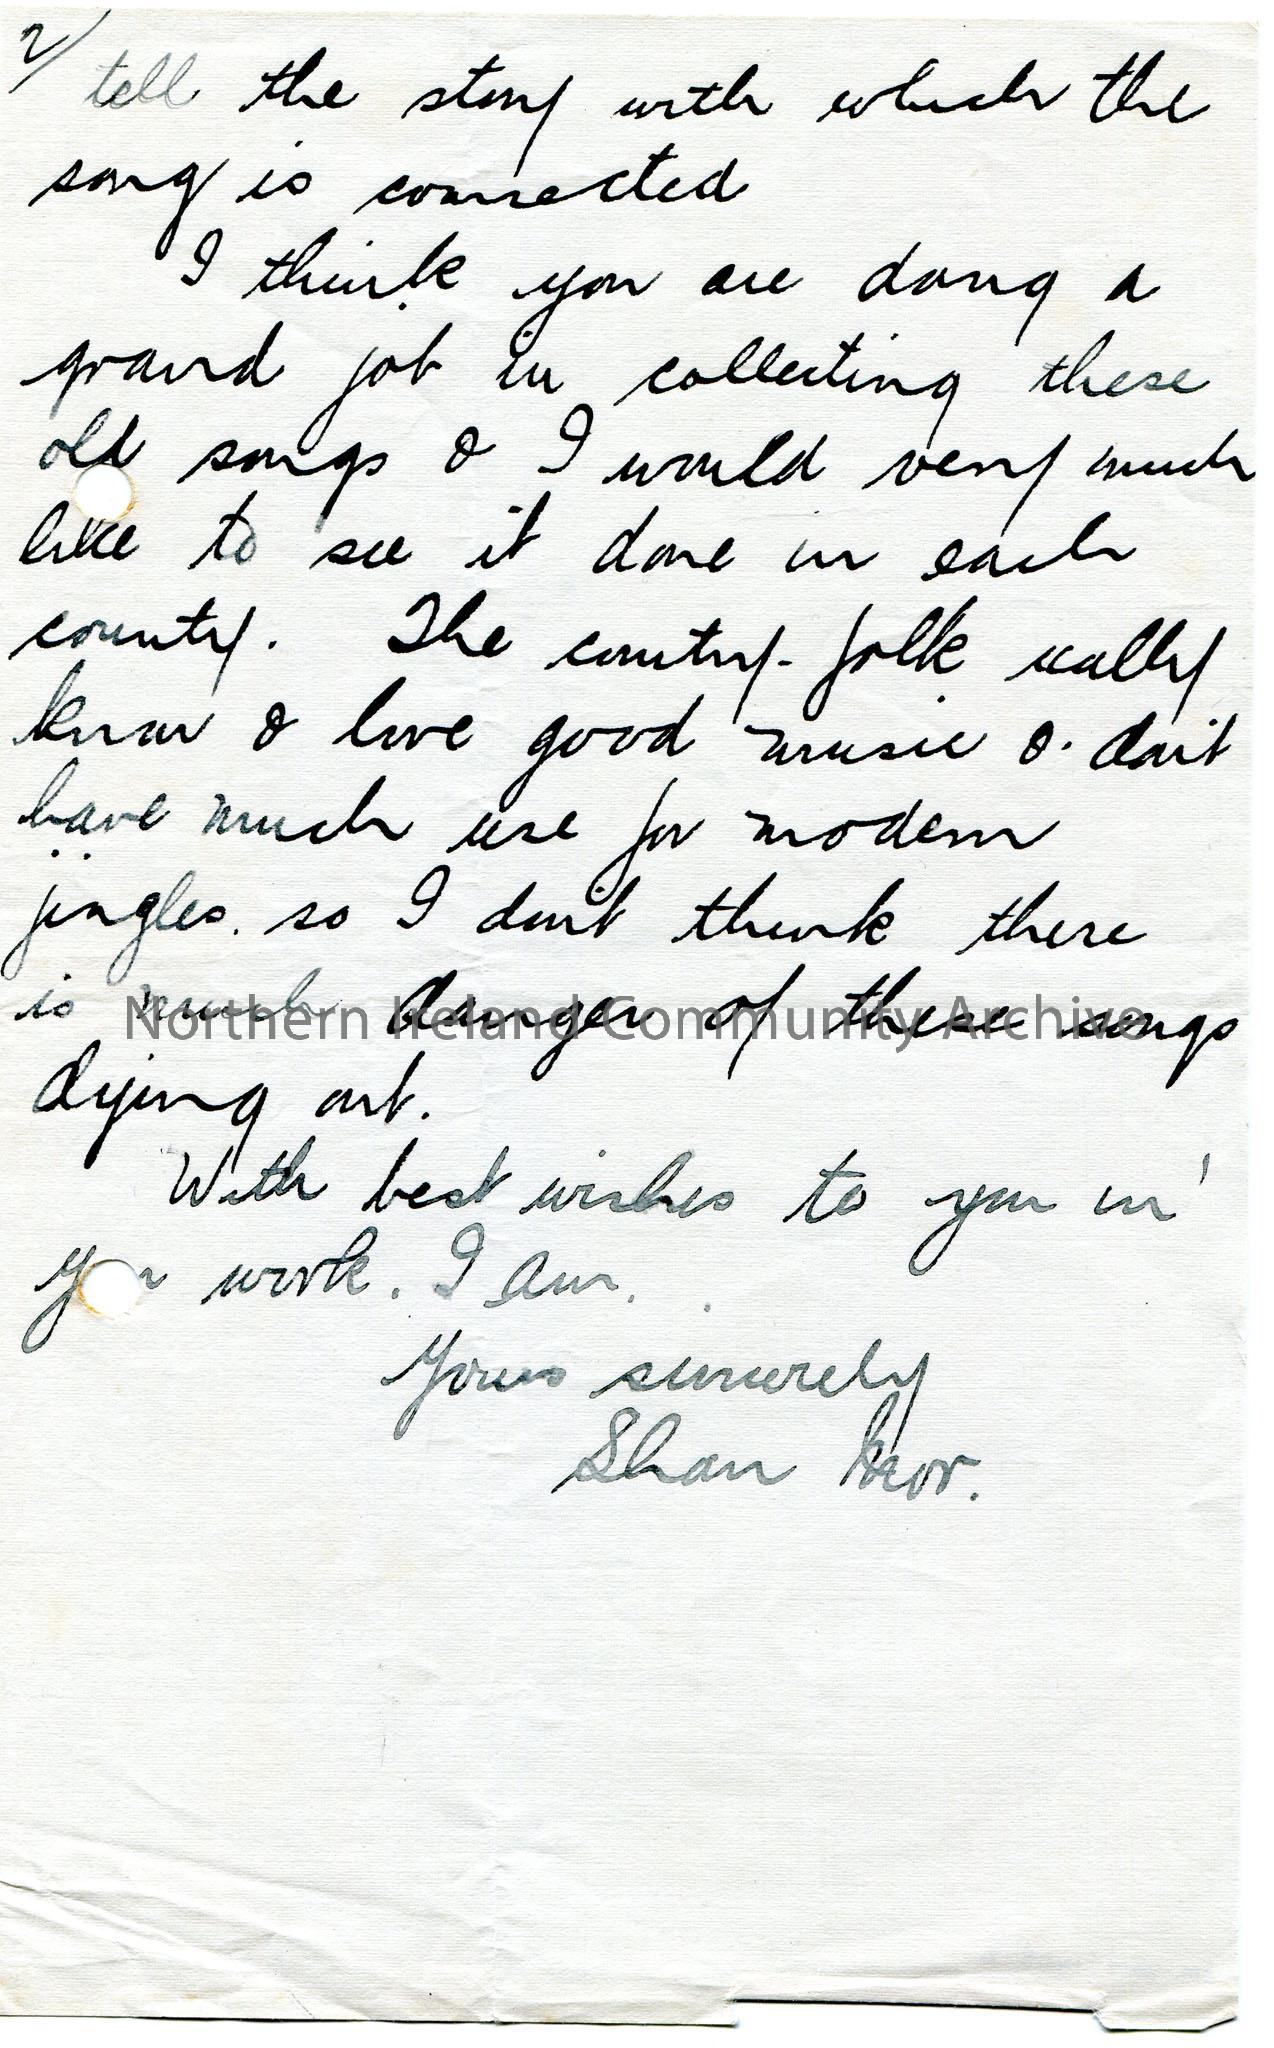 2/
tell the story with which the
song is connected
I think you are doing a
grand job in collecting these
old songs & I would very much
like to see it done in each
county. The country-folk really
know & love good music & don't
have much use for modern
jingles. so I don't think there
is much danger of these songs
Northern Ireland Community Archive
dying out.
With best wishes to you in
your work. I am.
Yours sincerely
Shan